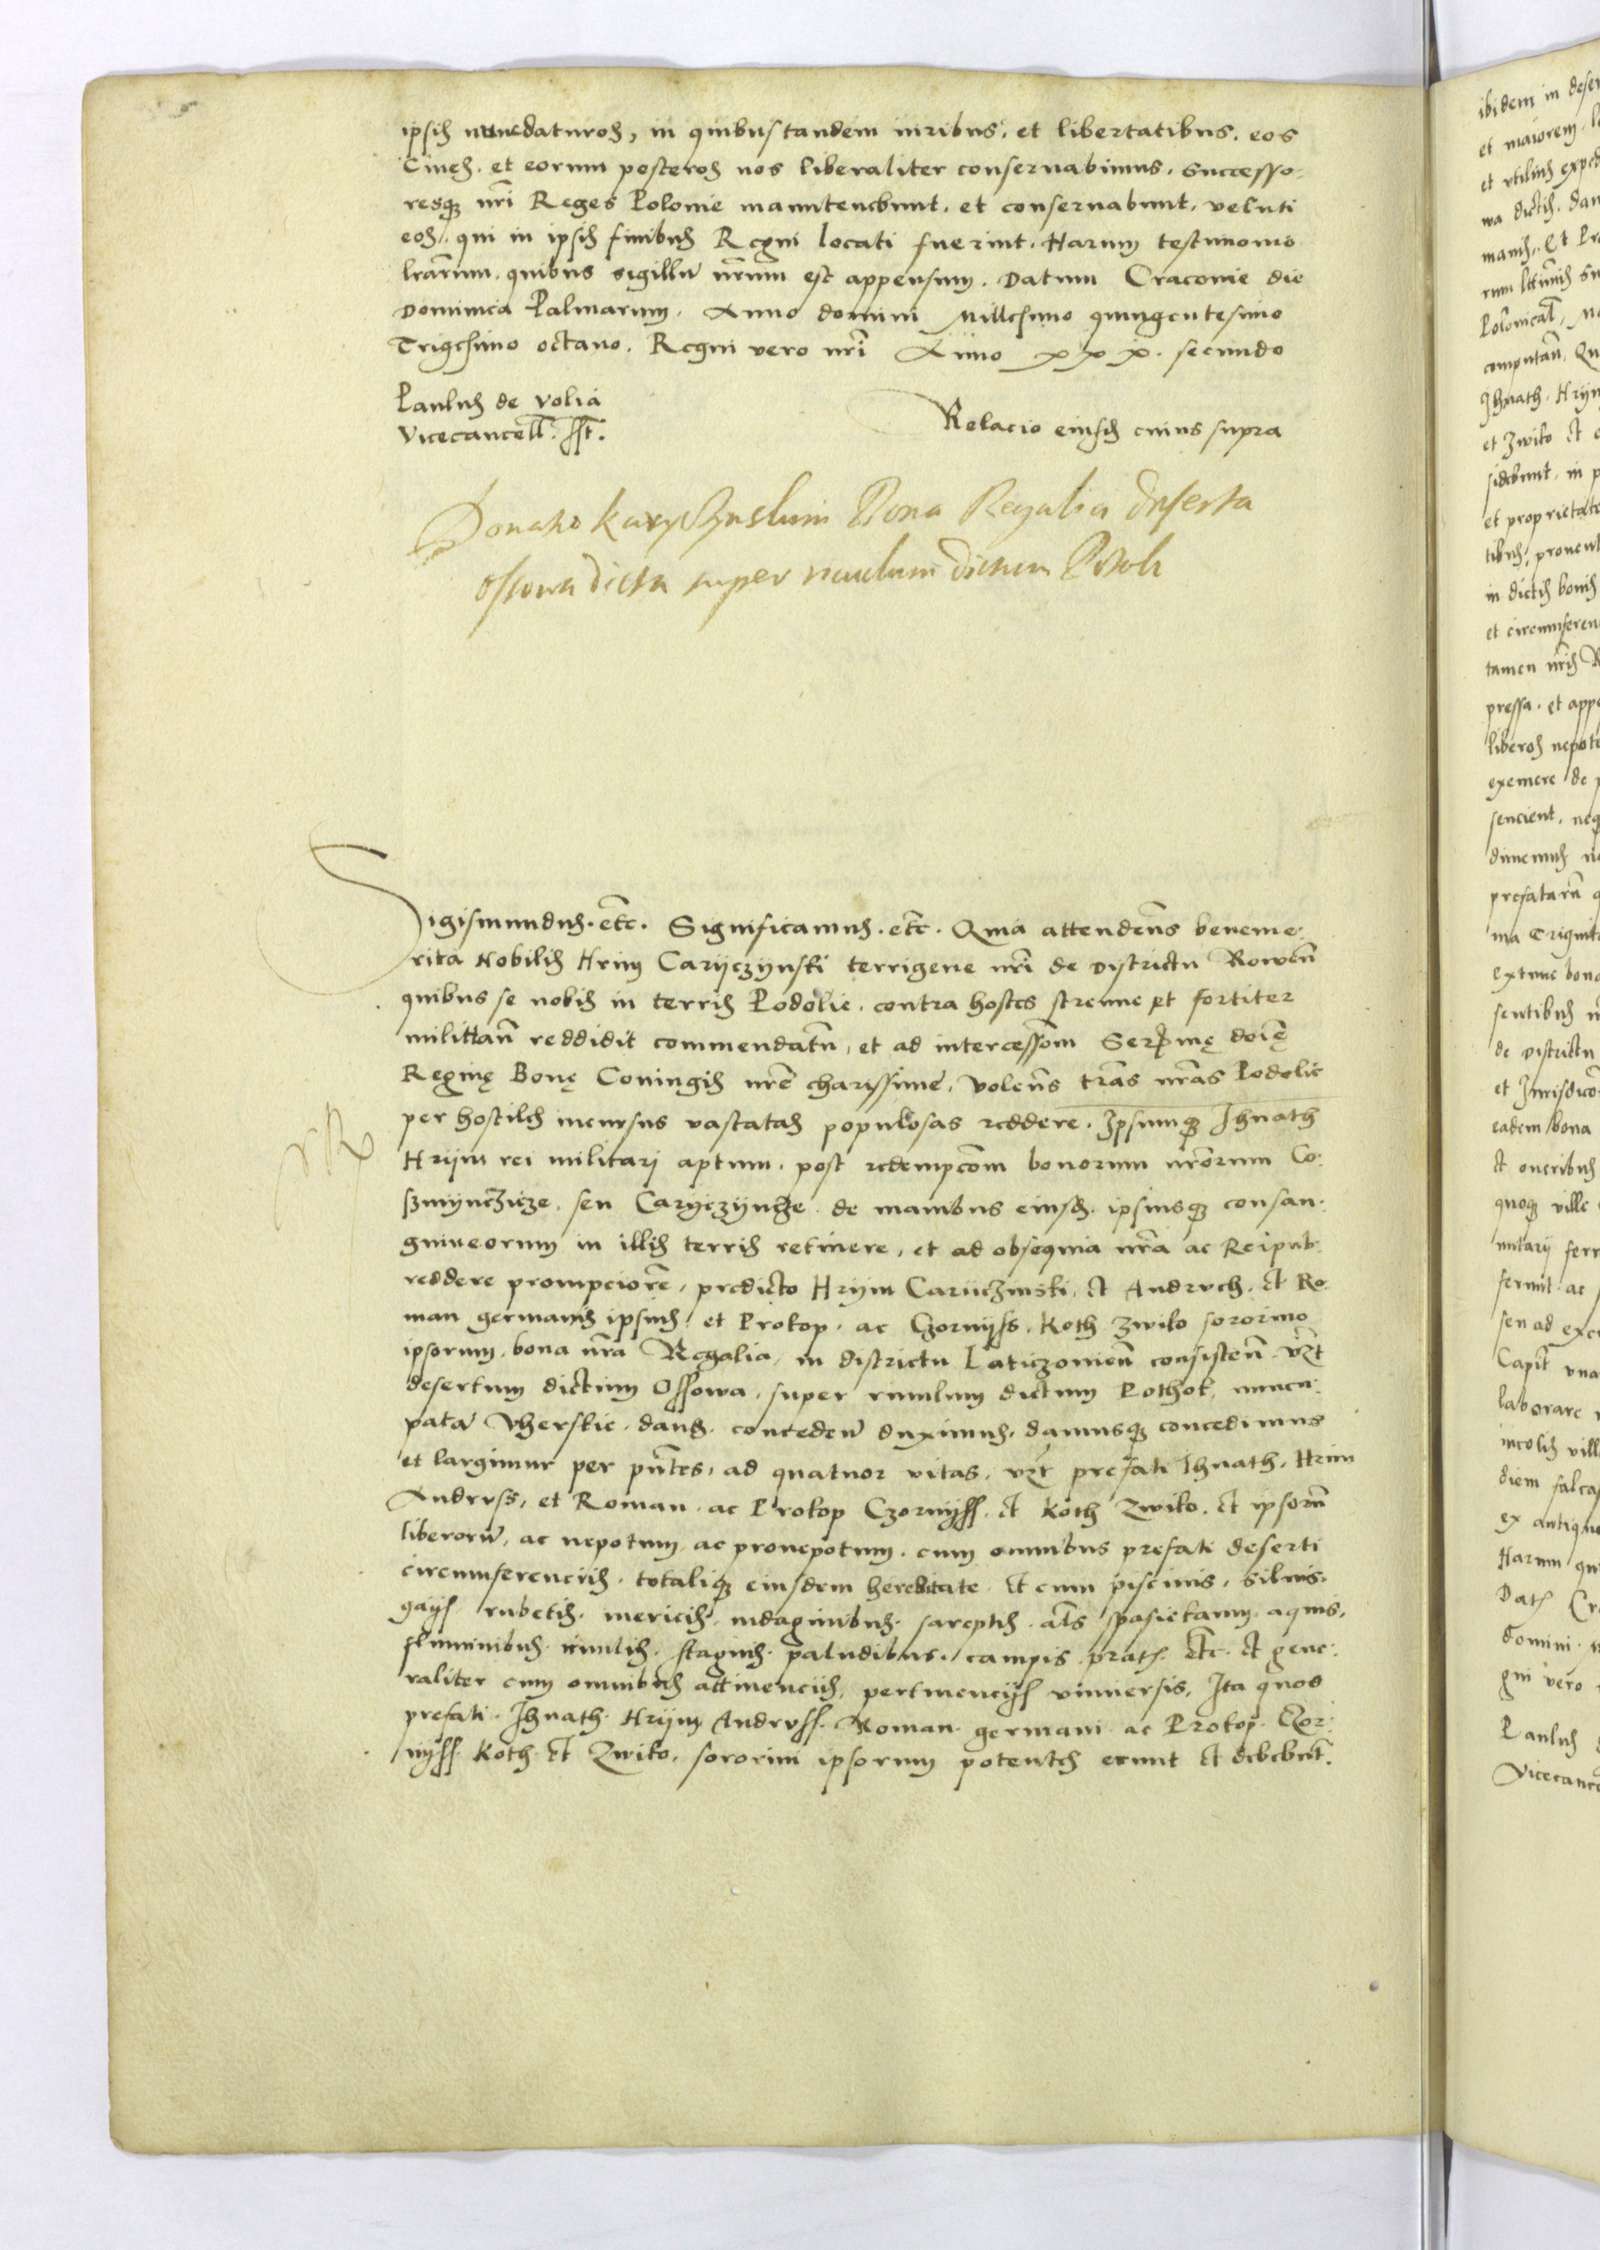 ipsis nunc daturos, in quibus tandem iuribus, et libertatibus, eos
Cives, et eorum posteros nos liberaliter conservabimus, Successo-
resq3 nri Reges Polonie manutenebunt, et conservabunt, veluti
eos, qui in ipsis finibus Regni locati fuerint. Harum testimonio
lrarum, quibus sigillu nrum est appensum. Datum Cracovie die
Dominica Palmarum. Anno domini Millesimo quingentesimo
Trigesimo octavo. Regni vero nri Anno xxx. secundo
Paulus de Volia
Vicecancell. sst.
Relacio eiusd cuius supra
Donatio Bona Regalia deserta
Ossowa dicta super rivulum dictum
Sigismundus. etc. Significamus. etc. Quia attendens beneme-
rita Nobilis Hrim Caryczynski terrigene nri de Districtu Rowen
quibus se nobis in terris Podolie, contra hostes strenue et fortiter
militan reddidit commendatu, et ad intercessom Serme doie
Regine Bone Coniugis nre charissime, volens tras nras Podolie
per hostiles incursus vastatas populosas reddere. Ipsumq3 Ihnath
Hrijm rei militari aptum, post redempcom bonorum nrorum Co-
seu de manibus eiusd. ipsiusq3 consan-
guineorum in illis terris retinere, et ad obsequia nra ac Reipub.
reddere prompciore, predicto Hrijm Cariiczinski, et Andrvch, et Ro-
man germanis ipsius, et Prokop, ac Czornyss, Koth Zwiko sororino
ipsorum, bona nra Regalia, in districtu Laticzovien consisten vzt
desertum dictum Ossowa, super rivulum dictum Pothok, nuncu-
pata dand. conceden duximus, damusq3 concedimus
et largimur per pntes, ad quatuor vitas, vzt prefati Ihnath, Hrim
Andrvss, et Roman, ac Prokop Czornyss, et Koth Zwiko, et ipsoru
liberoru, ac nepotum, ac pronepotum, cum omnibus prefati deserti
circumferenciis, totaliq3 eiusdem hereditate, et cum piscinis, silvis,
gays rubetis, mericis, indaginibus, als aquis,
fluminibus, rivulis, stagnis, paludibus, campis, prats etc. et gene-
raliter cum omnibus attinenciis, pertinencys universis, Ita quod
prefati Ihnath Hrijm Andrvss, Roman germani ac Prokop Czor-
nyss Koth et Zwiko, sororini ipsorum potentes erunt et debebunt.
ibidem in
et maiorem
et utilius
wa dictis, dan
manis, Et
Polonical
computan,
Ihnath, Hrijm
et Zwiko et
sidebunt, in
et proprietate
tibus, provent
in dictis bonis
et circumferen
tamen nris
pressa, et app
liberos nepot
exemere de
sencient, neq
prefataru
extunc bona
sentibus
de Districtu
et Jurisdico
eadem bona
et oneribus
quoq3 ville
fernt ac
seu ad
Capit una
laborare
incolis vill
diem falca
ex antiquo
Harum qui
Dats Cr
domini
gni vero
Paulus
Vicecanc